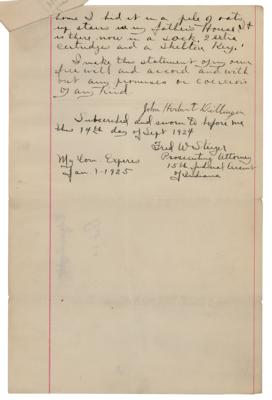 home I hid it in a pile of oats
up stairs in my fathers House &
is there now in a sock, I also
cartridges and a Skelton Key.
I make this statement of my own
free will and accord and with
out any promises or coercion
of any kind.
John Herbert Dillinger
Subscribed and sworn to before me
this 14th day of Sept 1924
Fred W. Steiger
My Com. Expires
Prosecuting Attorney
Jan. 1-1925
15th Judicial Circuit
of Indiana